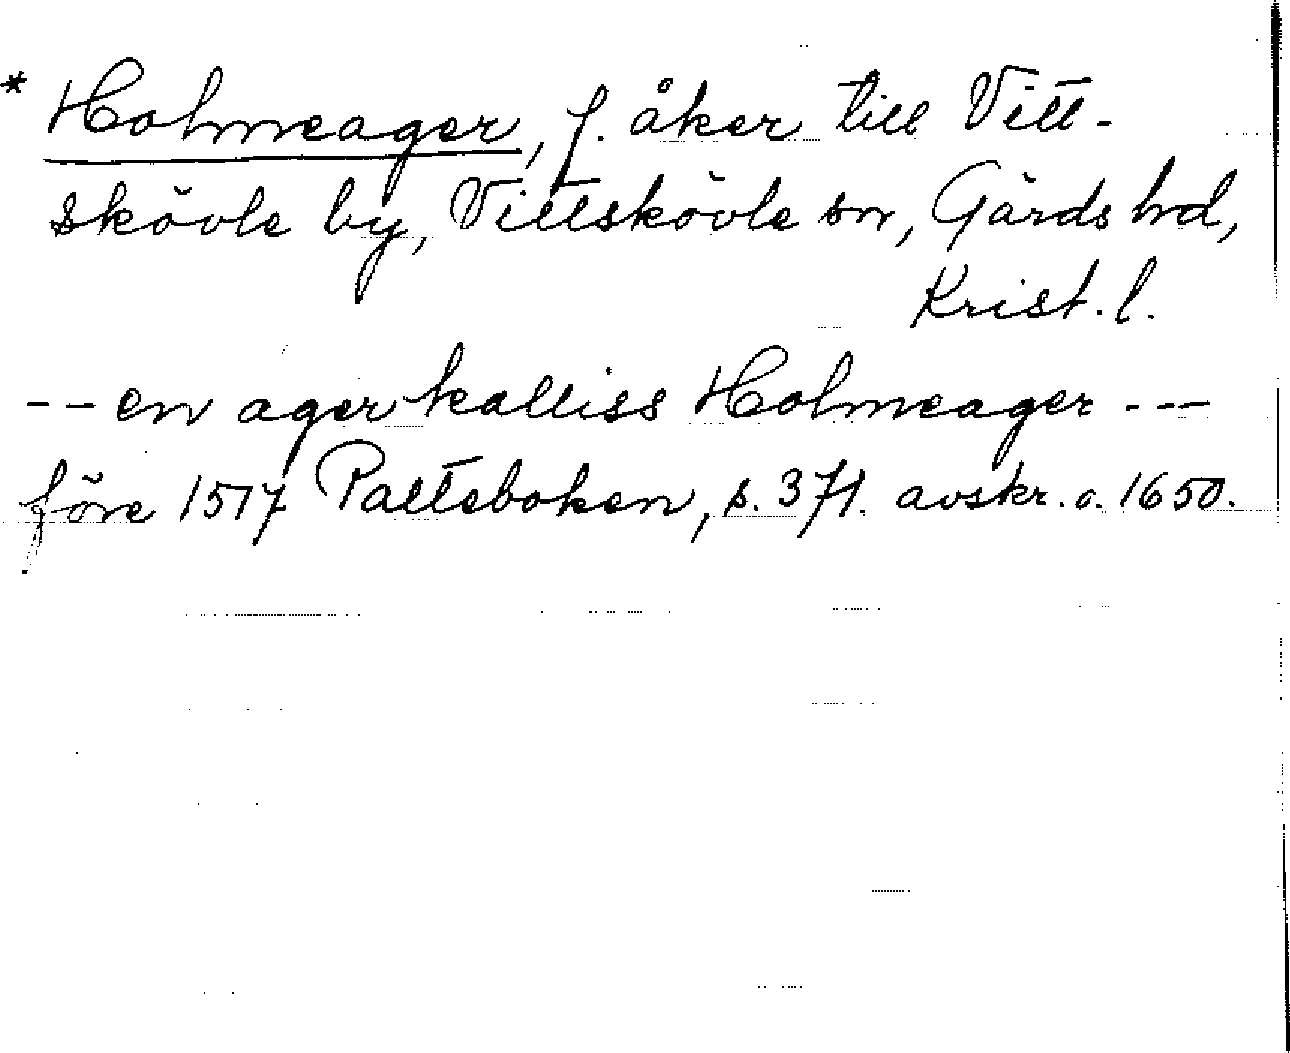 * Holmeager, f. åker till Vitt-
skövle by, Vittskövle sn, Gärds hd,
Krist. l.
-- en ager kalliss Holmeager ---
före 1517 Palteboken, s. 371. avskr. o. 1650.